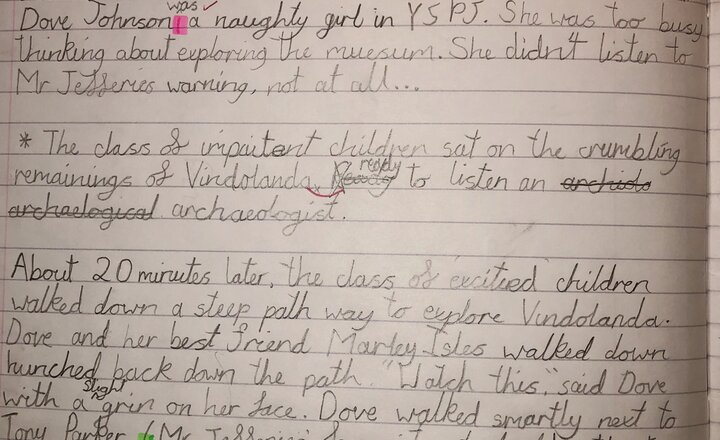 was
Dove Johnson a naughty girl in Y5 PJ. She was too busy
thinking about exploring the muesum. She didn't listen to
Mr Jefferies warning, not at all...
* The class of impaitent children sat on the crumbling
remainings of Vindolanda, ready to listen an archido
archaelogical archaeologist.
About 20 minutes later, the class of excitied children
walked down a steep path way to explore Vindolanda.
Dove and her best friend Marley-Isles walked down
hunched back down the path. "Watch this," said Dove
slight
with a grin on her face. Dove walked smartly next to
Tony Parker (Mr Jefferies'